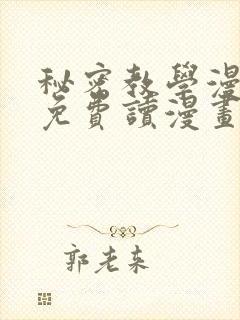 秘密教學漫
免費讀漫畫
郭老来